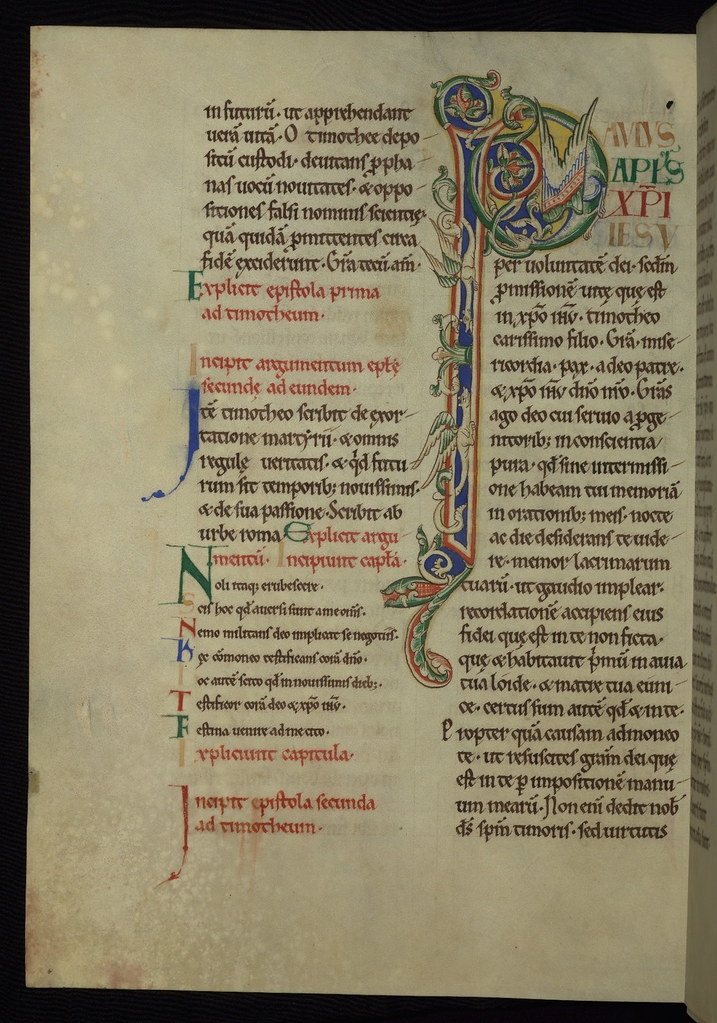 in futurũ · ut apprehendant
uerã uitã · O timothee depo
sitũ custodi · deuitans ꝓpha
nas uocũ nouitates · & oppo
sitiones falsi nominis scientię
quã quidã ꝓmittentes circa
fidẽ exciderunt · Grã tecũ am̃ ·
Explicit epistola prima
ad timotheum ·
Incipit argumentum eplę
secundę ad eundem ·
Itẽ timotheo scribit de exor
tatione martyrii · & omnis
regulę ueritatis · & qd̃ futu
rum sit temporib; nouissimis ·
& de sua passione · Scribit ab
urbe roma Explicit argu
mentũ · Incipiunt capľa ·
Noli itaq; erubescere ·
Scis hoc qd̃ auersi sunt a me om̃s ·
Nemo militans deo implicat se negotiis ·
Hęc cõmoneo testificans corã dño ·
Hoc autẽ scito qd̃ in nouissimis dieb; ·
Testificor corã deo & xp̃o iħu ·
Festina uenire ad me cito ·
Expliciunt capitula ·
Incipit epistola secunda
ad timotheum ·
PAVLVS
APL̃S
XP̃I
IESV
per uoluntatẽ dei · scd̃m
ꝓmissionẽ uitę que est
in xp̃o iħu · timotheo
carissimo filio · Grã · mise
ricordia · pax · a deo patre ·
& xp̃o iħu dño nr̃o · Grãs
ago deo cui seruio a ꝓge
nitorib; in conscientia
pura · qd̃ sine intermissi
one habeam tui memoriã
in orationib; meis · nocte
ac die desiderans te uide
re · memor lacrimarum
tuarũ · ut gaudio implear ·
recordationẽ accipiens eius
fidei quę est in te non ficta ·
que & habitauit p̃mũ in auia
tua loide · & matre tua euni
ce · certus sum autẽ qd̃ & in te ·
Propter quã causam admoneo
te · ut resuscites grãm dei quę
est in te ꝑ impositionẽ manu
um mearũ · Non enĩ dedit nob̃
ds̃ spm̃ timoris · sed uirtutis